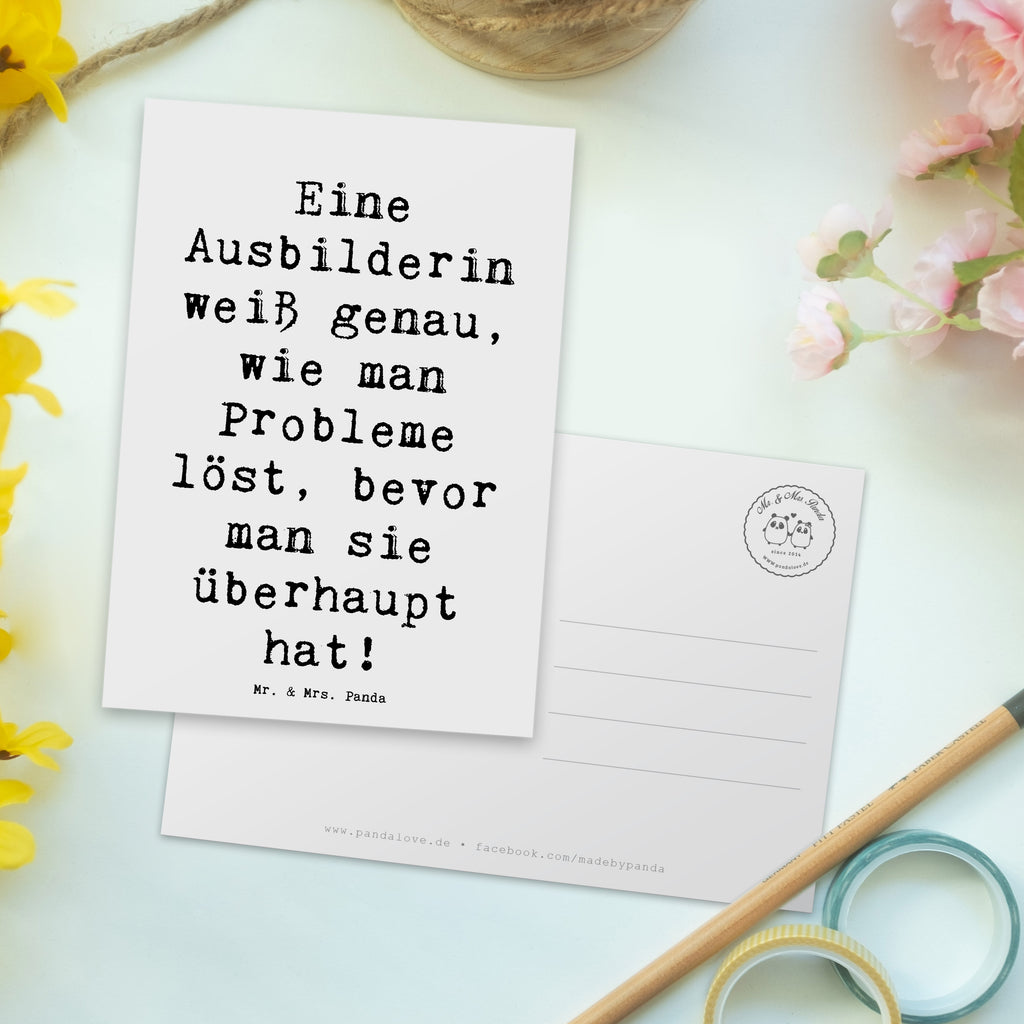 Eine
Ausbilderin
weiß genau,
wie man
Probleme
löst, bevor
man sie
überhaupt
hat!
Mr. & Mrs. Panda
Mr. & Mrs. Panda
since 2014
www.pandalove.de
www.pandalove.de • facebook.com/madebypanda
PITT PASTEL FABER-CASTELL